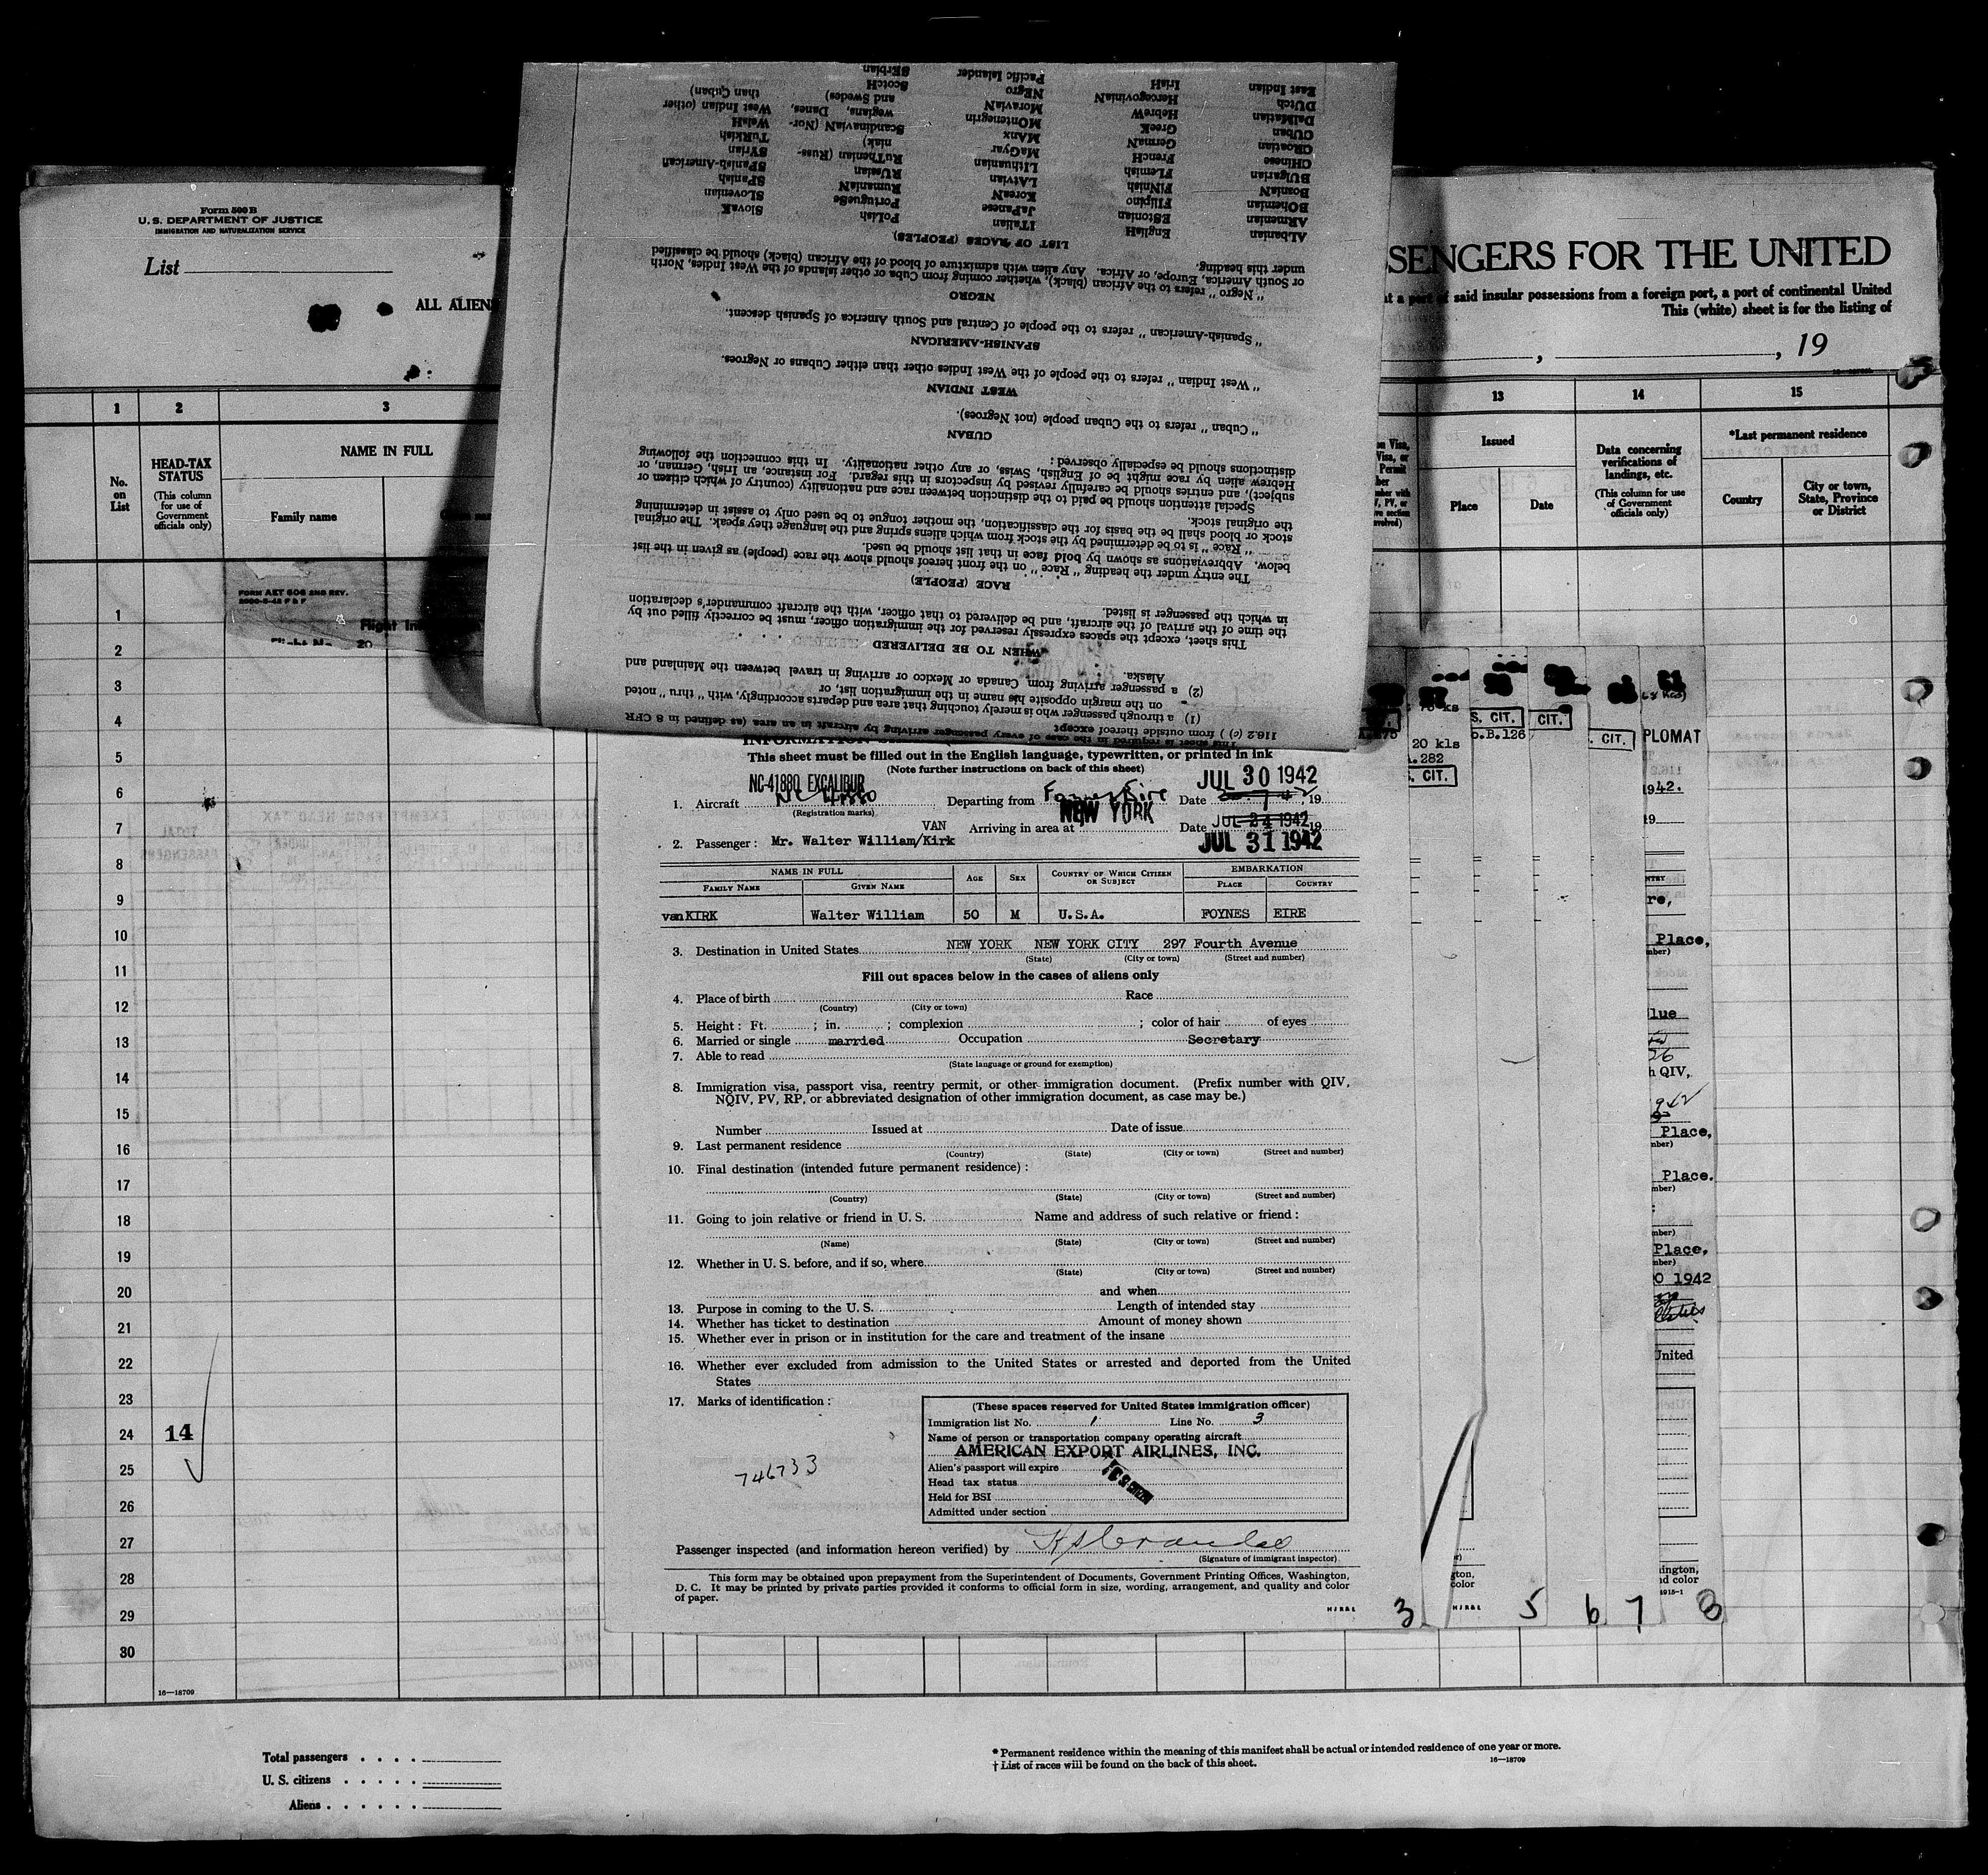 Form 500 B
U. S. DEPARTMENT OF JUSTICE
IMMIGRATION AND NATURALIZATION SERVICE
List
ALL ALIENS
1 2 3
No. on List
HEAD-TAX STATUS
(This column for use of Government officials only)
NAME IN FULL
Family name
FORM AET 606 2ND REV.
Flight
20
1
2
3
4
5
6
7
8
9
10
11
12
13
14
15
16
17
18
19
20
21
22
23
24 14
25
26
27
28
29
30
16—18709
Total passengers
U. S. citizens
Aliens
SENGERS FOR THE UNITED
said insular possessions from a foreign port, a port of continental United
This (white) sheet is for the listing of
, , 19
13 14 15
Issued
Place Date
Data concerning verifications of landings, etc.
(This column for use of Government officials only)
*Last permanent residence
Country
City or town, State, Province or District
116.2 (c) ) from outside thereof except
This sheet is required in the case of every passenger arriving by aircraft in an area (as defined in 8 CFR
(1) a through passenger who is merely touching that area and departs accordingly, with "thru" noted
on the margin opposite his name in the immigration list, or
(2) a passenger arriving from Canada or Mexico or arriving in travel between the Mainland and
Alaska.
WHEN TO BE DELIVERED
This sheet, except the spaces expressly reserved for the immigration officer, must be correctly filled out by
the time of the arrival of the aircraft, and be delivered to that officer, with the aircraft commander's declaration
in which the passenger is listed.
RACE (PEOPLE)
The entry under the heading "Race" on the front hereof should show the race (people) as given in the list
below. Abbreviations as shown by bold face in that list should be used.
"Race" is to be determined by the stock from which aliens spring and the language they speak. The original
stock or blood shall be the basis for the classification, the mother tongue to be used only to assist in determining
the original stock.
Special attention should be paid to the distinction between race and nationality (country of which citizen or
subject), and entries should be carefully revised by inspectors in this regard. For instance, an Irish, German, or
Hebrew alien by race might be of English, Swiss, or any other nationality. In this connection the following
distinctions should be especially observed:
CUBAN
"Cuban" refers to the Cuban people (not Negroes).
WEST INDIAN
"West Indian" refers to the people of the West Indies other than either Cubans or Negroes.
SPANISH-AMERICAN
"Spanish-American" refers to the people of Central and South America of Spanish descent.
NEGRO
"Negro" refers to the African (black), whether coming from Cuba or other islands of the West Indies, North
or South America, Europe, or Africa. Any alien with admixture of blood of the African (black) should be classified
under this heading.
LIST OF RACES (PEOPLES)
ALbanian EnglisH ITalian PoLish SlovaK
ARmenian EStonian JaPanese PortugueSe SLOvenian
BOhemian FIlipino KoreaN RumaniaN SPanish
BosniaN FINnish LAtviaN RUssian SPanish-American
BUlgarian FLemish LIthuanian RuTHenian (Russniak) SYrian
CHInese FrencH MaGyar ScandinaviaN (Norwegians, Danes, and Swedes) TuRkish
CROatian GermaN MAnx ScotcH WelsH
CUban GreeK MOntenegrin SErbian West Indian (other than Cuban)
DalMatian HebreW MoraviaN
DUtch HercegoviniaN NEgro
East Indian IrisH Pacific Islander
This sheet must be filled out in the English language, typewritten, or printed in ink
(Note further instructions on back of this sheet)
NC-41880 EXCALIBUR JUL 30 1942
1. Aircraft NC 41880 Departing from Foynes Eire Date , 19
(Registration marks)
NEW YORK
Arriving in area at Date JUL 24 1942 19
VAN
2. Passenger: Mr. Walter William/Kirk JUL 31 1942
NAME IN FULL AGE SEX COUNTRY OF WHICH CITIZEN OR SUBJECT EMBARKATION
FAMILY NAME GIVEN NAME PLACE COUNTRY
van KIRK Walter William 50 M U.S.A. FOYNES EIRE
3. Destination in United States NEW YORK NEW YORK CITY 297 Fourth Avenue
(State) (City or town) (Street and number)
Fill out spaces below in the cases of aliens only
4. Place of birth Race
(Country) (City or town)
5. Height: Ft. ; in. ; complexion ; color of hair of eyes
6. Married or single married Occupation Secretary
7. Able to read
(State language or ground for exemption)
8. Immigration visa, passport visa, reentry permit, or other immigration document. (Prefix number with QIV,
NQIV, PV, RP, or abbreviated designation of other immigration document, as case may be.)
Number Issued at Date of issue
9. Last permanent residence
(Country) (State) (City or town) (Street and number)
10. Final destination (intended future permanent residence):
(Country) (State) (City or town) (Street and number)
11. Going to join relative or friend in U. S. Name and address of such relative or friend:
(Name) (State) (City or town) (Street and number)
12. Whether in U. S. before, and if so, where
(State) (City or town) (Street and number)
and when
13. Purpose in coming to the U. S. Length of intended stay
14. Whether has ticket to destination Amount of money shown
15. Whether ever in prison or in institution for the care and treatment of the insane
16. Whether ever excluded from admission to the United States or arrested and deported from the United
States
17. Marks of identification:
746733
(These spaces reserved for United States immigration officer)
Immigration list No. 1 Line No. 3
Name of person or transportation company operating aircraft
AMERICAN EXPORT AIRLINES, INC.
Alien's passport will expire
Head tax status
Held for BSI
Admitted under section
Passenger inspected (and information hereon verified) by
(Signature of immigrant inspector)
This form may be obtained upon prepayment from the Superintendent of Documents, Government Printing Offices, Washington,
D. C. It may be printed by private parties provided it conforms to official form in size, wording, arrangement, and quality and color
of paper.
20 kls
.282
S. CIT.
S. CIT.
o.B.126
CIT.
. CIT.
PLOMAT
1942.
19
re,
Place,
lue
26
h QIV,
Place,
Place.
Place,
0 1942
United
ington,
nd color
3 5 6 7 8
* Permanent residence within the meaning of this manifest shall be actual or intended residence of one year or more.
† List of races will be found on the back of this sheet.
16—18709